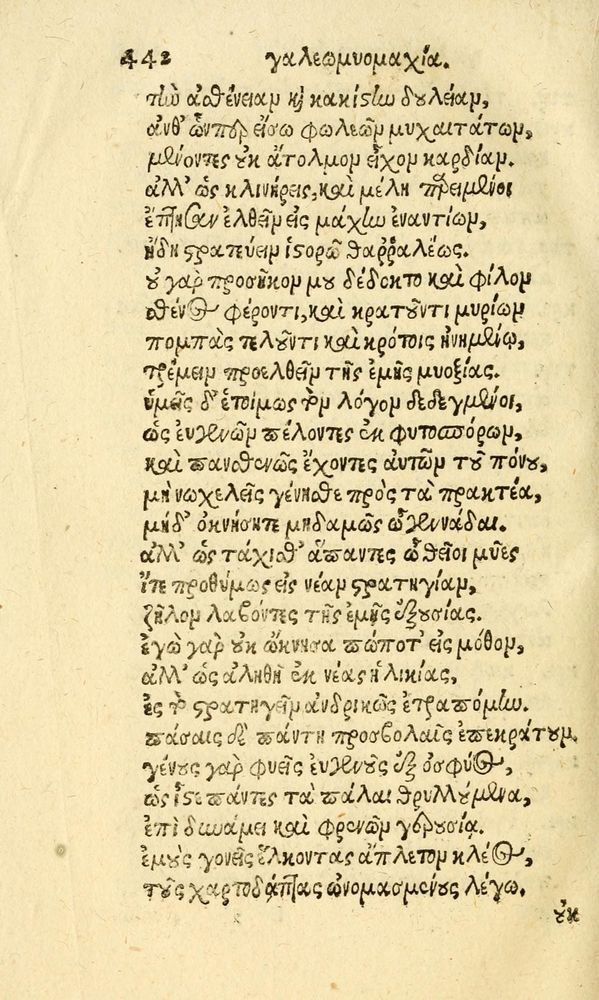 442 γαλεωμυομαχία.
τὴν ἀσθένειαν καὶ κακίστην δουλείαν,
ἀνθ' ὧνπερ εἴσω φωλεῶν μυχαιτάτων,
μένοντες οὐκ ἄτολμον εἶχον καρδίαν.
ἀλλ' ὡς κλινήρεις, καὶ μέλη παρειμένοι
ἐλθεῖν εἰς μάχην ἐναντίων,
ἤδη στρατεύειν ἱστορῶ θαῤῥαλέως.
οὐ γὰρ προσῆκον μου δέδοκτο καὶ φίλον
σθένος φέροντι, καὶ κρατοῦντι μυρίων
πομπὰς τελοῦντι καὶ κρότοις ᾐνημένῳ,
τρέμειν προελθεῖν τῆς ἐμῆς μυοξίας.
ὑμεῖς δ' ἑτοίμως τὸν λόγον δεδεγμένοι,
ὡς εὐγενῶν πέλοντες ἐκ φυτοσπόρων,
καὶ πανσθενῶς ἔχοντες αὐτῶν τοῦ πόνου,
μὴ νωχελεῖς γένησθε πρὸς τὰ πρακτέα,
μηδ' ὀκνήσητε μηδαμῶς ὦ γεννάδαι.
ἀλλ' ὡς τάχισθ' ἅπαντες ὦ θεῖοι μῦες
ἴτε προθύμως εἰς νέαν στρατηγίαν,
ζῆλον λαβόντες τῆς ἐμῆς ἐξουσίας.
ἐγὼ γὰρ οὐκ ὤκνησα πώποτ' εἰς μόθον,
ἀλλ' ὡς ἀληθῆ ἐκ νέας ἡλικίας,
ἐς τὸ στρατηγεῖν ἀνδρικῶς ἐτραπόμην.
πάσαις δὲ πάντη προσβολαῖς ἐπεκράτουν
γένους γὰρ φυεὶς εὐγενοῦς ἐξ ὀσφύος,
ὡς ἴστε πάντες τὰ πάλαι θρυλλούμενα,
ἐπὶ δυνάμει καὶ φρενῶν γερουσίᾳ.
ἐμοὺς γονεῖς ἕλκοντας ἄπλετον κλέος,
τοὺς χαρτοδάπτας ὠνομασμένους λέγω.
οὐκ